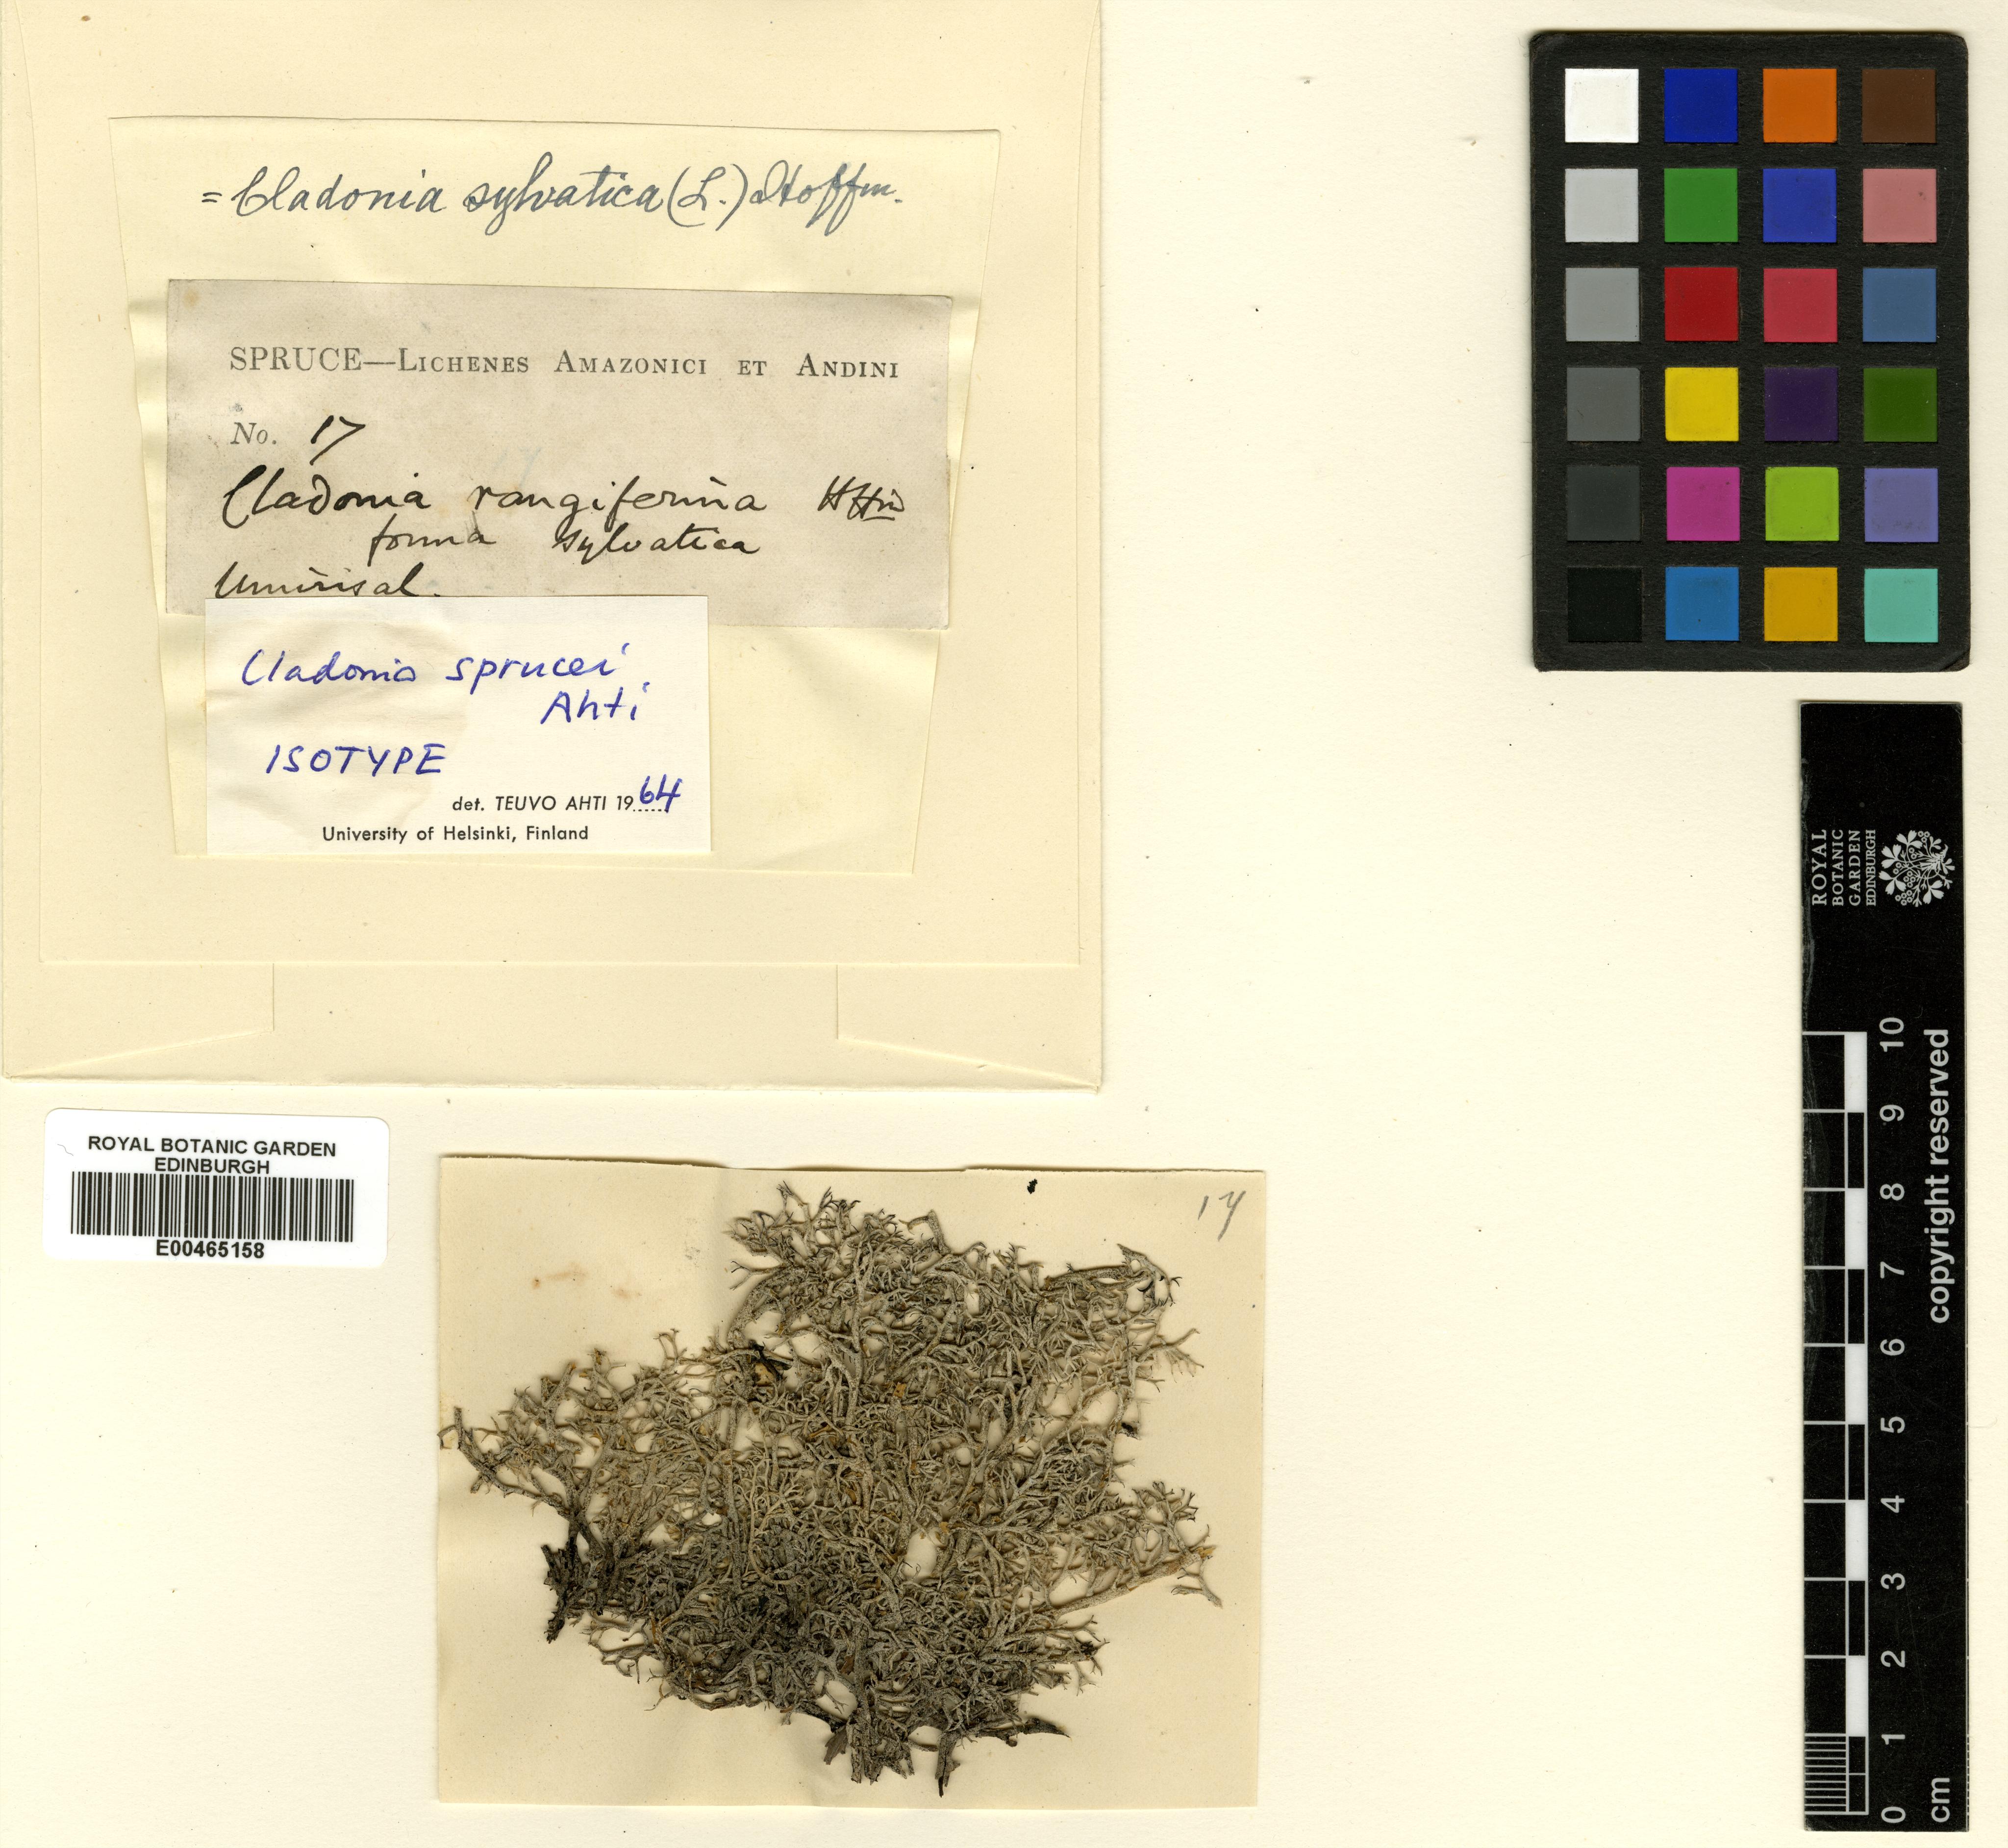 = Cladonia sylvatica (L.) Hoffm.
SPRUCE—LICHENES AMAZONICI ET ANDINI
No. 17
Cladonia rangiferina Hffm
forma sylvatica
Umirisal.
Cladonia sprucei
Ahti
ISOTYPE
det. TEUVO AHTI 1964
University of Helsinki, Finland
ROYAL BOTANIC GARDEN
EDINBURGH
E00465158
17
ROYAL
BOTANIC
GARDEN
EDINBURGH
copyright reserved
10
9
8
7
6
5
4
3
2
1
0
cm